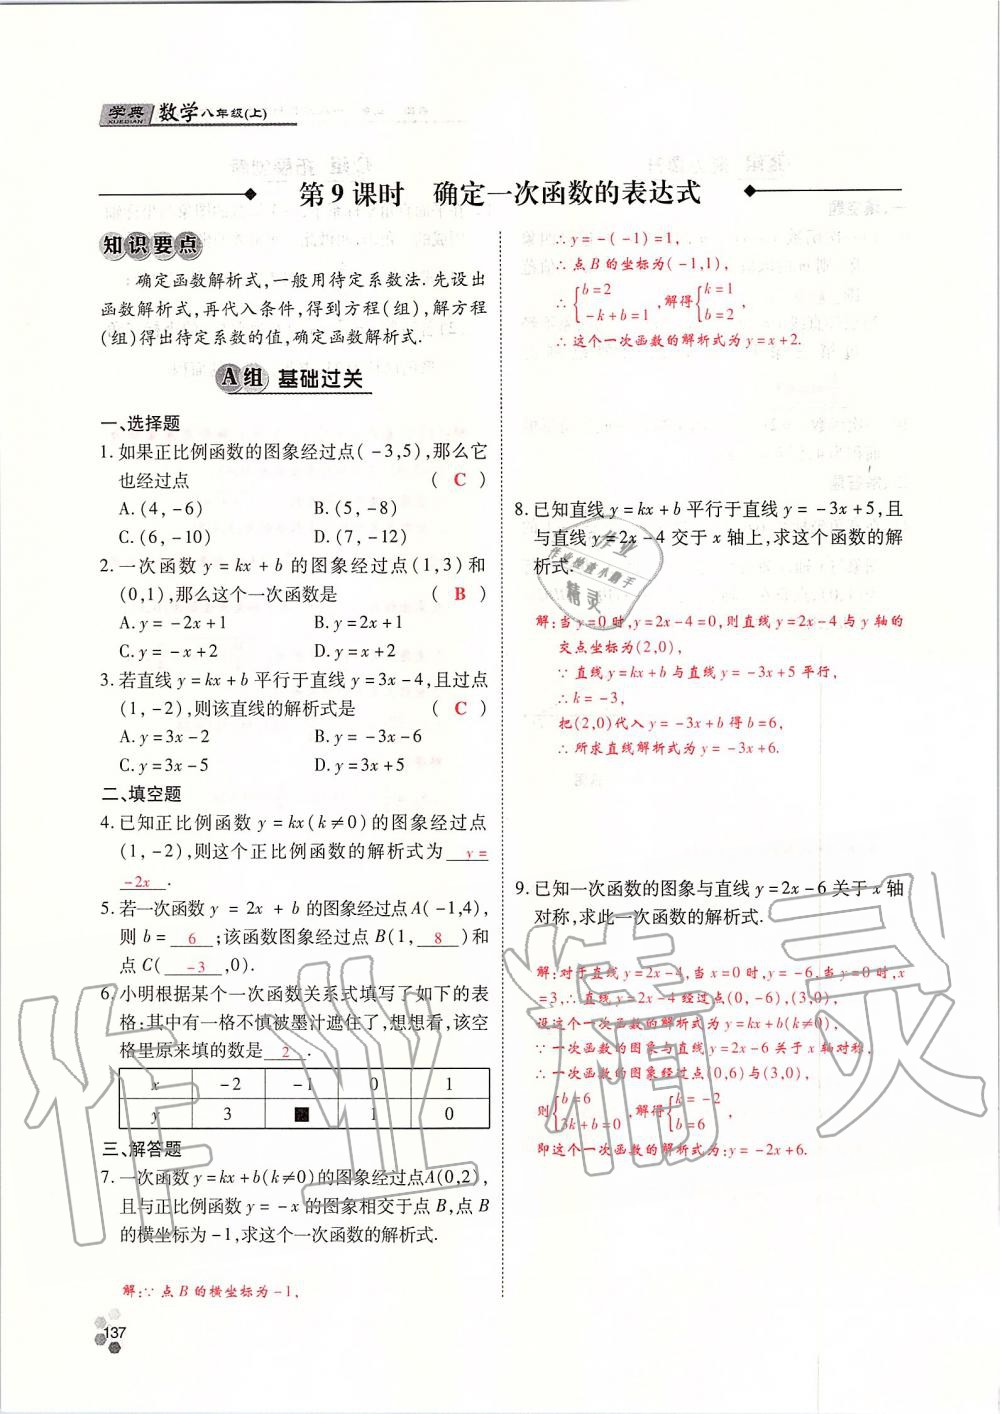 学典 数学八年级(上)
XUEDIAN
第9课时 确定一次函数的表达式
知识要点
确定函数解析式,一般用待定系数法.先设出
函数解析式,再代入条件,得到方程(组),解方程
(组)得出待定系数的值,确定函数解析式.
A组 基础过关
一、选择题
1.如果正比例函数的图象经过点(-3,5),那么它
也经过点 ( C )
A.(4,-6) B.(5,-8)
C.(6,-10) D.(7,-12)
2.一次函数y=kx+b的图象经过点(1,3)和
(0,1),那么这个一次函数是 ( B )
A.y=-2x+1 B.y=2x+1
C.y=-x+2 D.y=x+2
3.若直线y=kx+b平行于直线y=3x-4,且过点
(1,-2),则该直线的解析式是 ( C )
A.y=3x-2 B.y=-3x-6
C.y=3x-5 D.y=3x+5
二、填空题
4.已知正比例函数y=kx(k≠0)的图象经过点
(1,-2),则这个正比例函数的解析式为 y=
-2x .
5.若一次函数y=2x+b的图象经过点A(-1,4),
则b= 6 ;该函数图象经过点B(1, 8 )和
点C( -3 ,0).
6.小明根据某个一次函数关系式填写了如下的表
格;其中有一格不慎被墨汁遮住了,想想看,该空
格里原来填的数是 2 .
x -2 -1 0 1
y 3 ■ 1 0
三、解答题
7.一次函数y=kx+b(k≠0)的图象经过点A(0,2),
且与正比例函数y=-x的图象相交于点B,点B
的横坐标为-1,求这个一次函数的解析式.
解:∵点B的横坐标为-1,
137
∴y=-(-1)=1,
∴点B的坐标为(-1,1),
∴{b=2 -k+b=1 ,解得{k=1 b=2 ,
∴这个一次函数的解析式为y=x+2.
8.已知直线y=kx+b平行于直线y=-3x+5,且
与直线y=2x-4交于x轴上,求这个函数的解
析式.
解:当y=0时,y=2x-4=0,则直线y=2x-4与y轴的
交点坐标为(2,0),
∵直线y=kx+b与直线y=-3x+5平行,
∴k=-3,
把(2,0)代入y=-3x+b得b=6,
∴所求直线解析式为y=-3x+6.
9.已知一次函数的图象与直线y=2x-6关于x轴
对称,求此一次函数的解析式.
解:对于直线y=2x-4,当x=0时,y=-6,当y=0时,x
=3,∴直线y=2x-6经过点(0,-6),(3,0),
设这个一次函数的解析式为y=kx+b(k≠0),
∵一次函数的图象与直线y=2x-6关于x轴对称,
∴一次函数的图象经过点(0,6)与(3,0),
则{b=6 3k+b=0 ,解得{k=-2 b=6 ,
即这个一次函数的解析式为:y=-2x+6.
作业
作业检查小助手
精灵
作业精灵